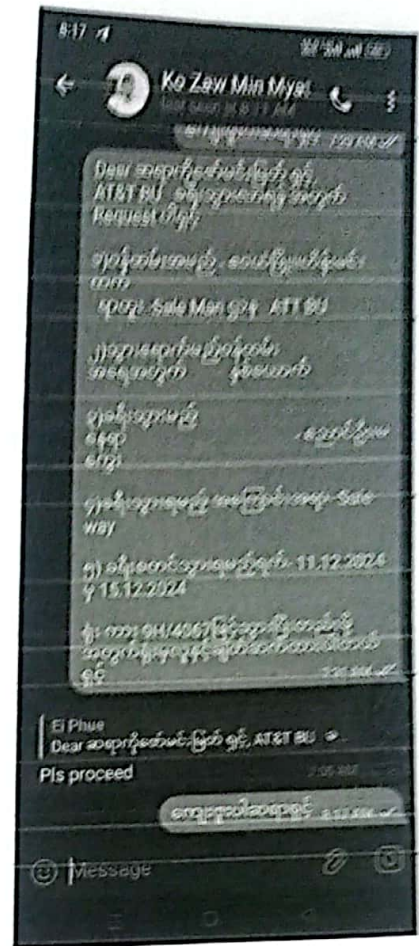 8:17
Ko Zaw Min Myat
last seen at 8:11 AM
ကျေးဇူးပါဆရာရှင့်
Dear ဆရာကိုဇော်မင်းမြတ် ရှင့်
AT&T BU ခရီးသွားလာရန် အတွက်
Request ပါရှင့်
၁)ဝန်ထမ်းအမည်
ထက်
ရာထူး Sale Man ဌာန ATT BU
၂)သွားရောက်မည့်ဝန်ထမ်း
အရေအတွက် နှစ်ယောက်
၃)ခရီးသွားမည့်
နေရာ
၄)ခရီးသွားရမည့် အကြောင်းအရာ- Sale
way
၅) ခရီးစတင်သွားရမည့်ရက်- 11.12.2024
မှ 15.12.2024
ရုံး ကား 9H/4067ဖြင့်သွား
ရှင့်
Ei Phue
Dear ဆရာကိုဇော်မင်းမြတ် ရှင့် AT&T BU ခ
Pls proceed
ကျေးဇူးပါဆရာရှင့်
Message